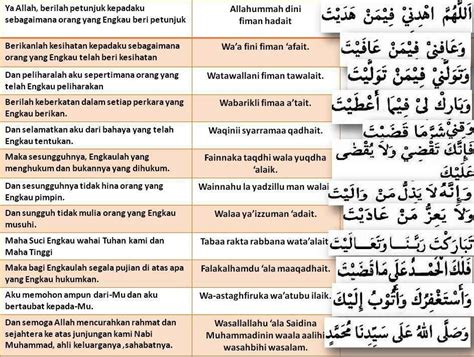 Ya Allah, berilah petunjuk kepadaku
sebagaimana orang yang Engkau beri petunjuk
Allahummah dini
fiman hadait
اَللّٰهُمَّ اهْدِنِيْ فِيْمَنْ هَدَيْتَ
Berikanlah kesihatan kepadaku sebagaimana
orang yang Engkau telah beri kesihatan
Wa'a fini fiman 'afait.
وَعَافِنِيْ فِيْمَنْ عَافَيْتَ
Dan peliharalah aku sepertimana orang yang
telah Engkau peliharakan
Watawallani fiman tawalait.
وَتَوَلَّنِيْ فِيْمَنْ تَوَلَّيْتَ
Berilah keberkatan dalam setiap perkara yang
Engkau berikan.
Wabarikli fimaa a'tait.
وَبَارِكْ لِيْ فِيْمَا أَعْطَيْتَ
Dan selamatkan aku dari bahaya yang telah
Engkau tentukan.
Waqinii syarramaa qadhait.
وَقِنِيْ شَرَّمَا قَضَيْتَ
Maka sesungguhnya, Engkaulah yang
menghukum dan bukannya yang dihukum.
Fainnaka taqdhi wala yuqdha
'alaik.
فَإِنَّكَ تَقْضِيْ وَلاَ يُقْضَى
عَلَيْكَ
Dan sesungguhnya tidak hina orang yang
Engkau pimpin.
Wainnahu la yadzillu man walai
وَإِنَّهُ لاَ يَذِلُّ مَنْ وَالَيْتَ
Dan sungguh tidak mulia orang yang Engkau
musuhi.
Walaa ya'izzuman 'adait.
وَلاَ يَعِزُّ مَنْ عَادَيْتَ
Maha Suci Engkau wahai Tuhan kami dan
Maha Tinggi
Tabaa rakta rabbana wata'alait.
تَبَارَكْتَ رَبَّنَا وَتَعَالَيْتَ
Maka bagi Engkaulah segala pujian di atas apa
yang Engkau hukumkan.
Falakalhamdu 'ala maaqadhait.
فَلَكَ الْحَمْدُ عَلَى مَاقَضَيْتَ
Aku memohon ampun dari-Mu dan aku
bertaubat kepada-Mu.
Wa-astaghfiruka wa'atubu ilaik.
وَأَسْتَغْفِرُكَ وَأَتُوْبُ إِلَيْكَ
Dan semoga Allah mencurahkan rahmat dan
sejahtera ke atas junjungan kami Nabi
Muhammad, ahli keluarganya ,sahabatnya.
Wasallallahu 'ala Saidina
Muhammadinin waala aalihi
wasahbihi wasalam.
وَصَلَّى اللهُ عَلَى سَيِّدِنَا مُحَمَّدٍ